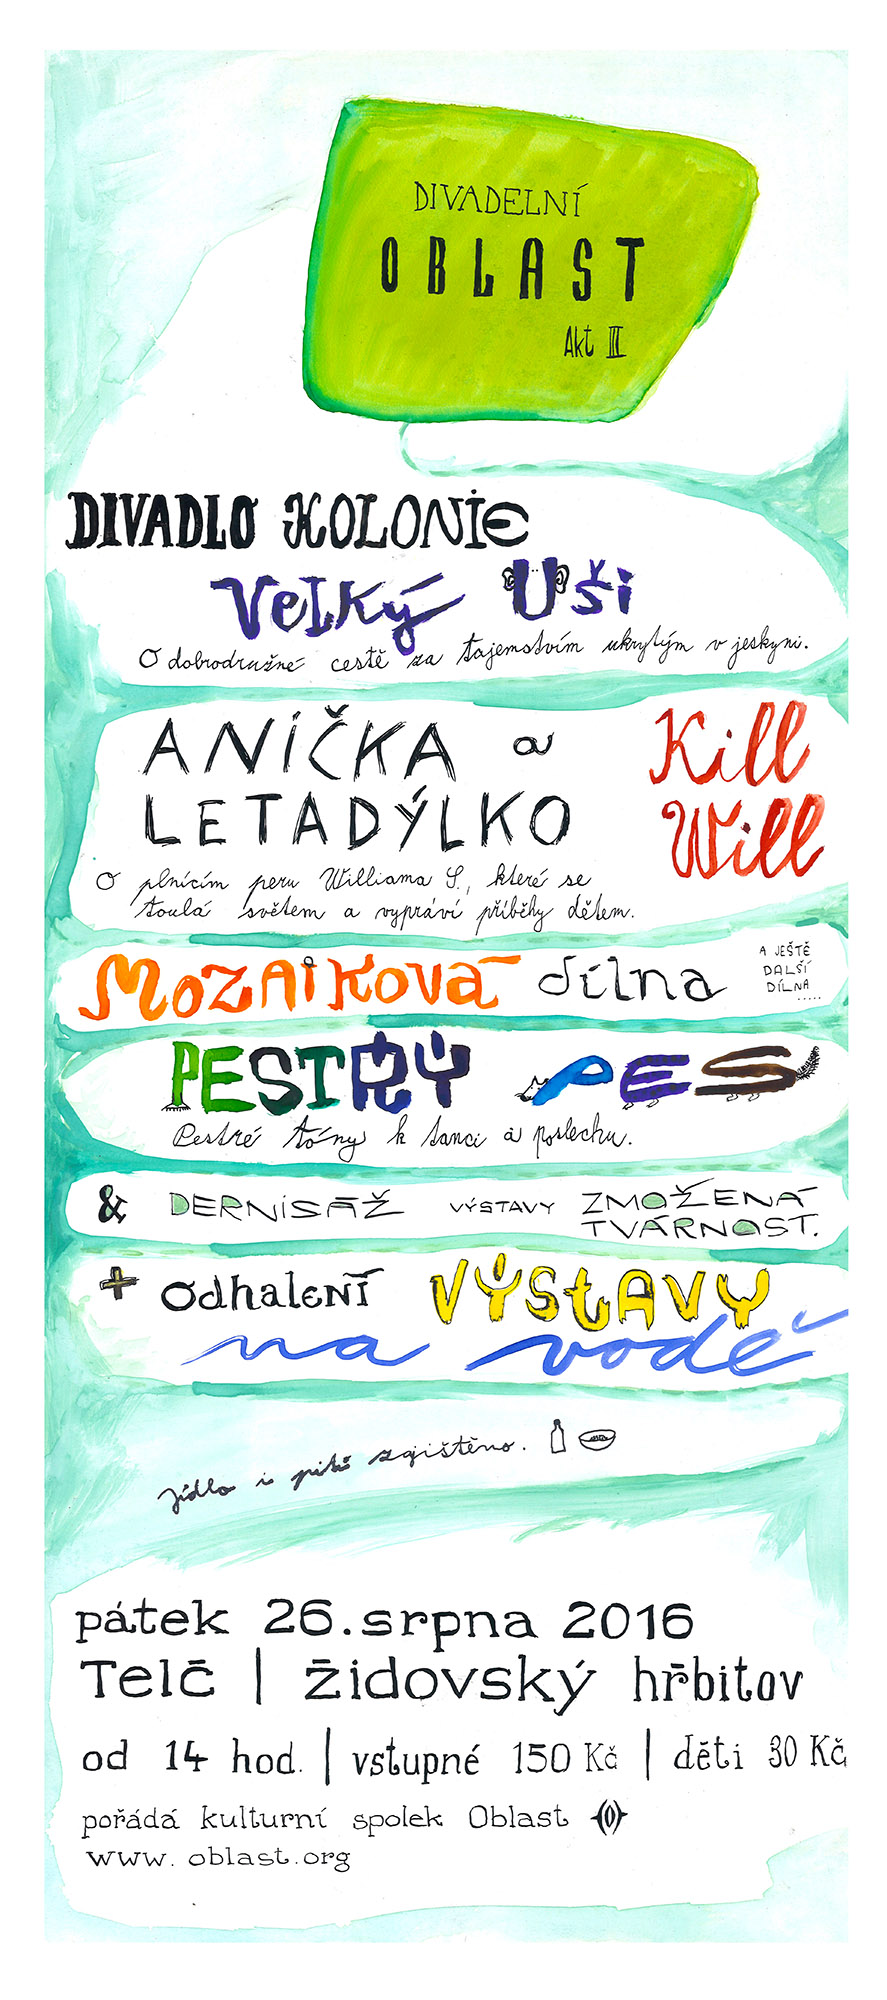 DIVADELNÍ
OBLAST
Akt III
DIVADLO KOLONIE
VELKÝ Uši
O dobrodružné cestě za tajemstvím ukrytým v jeskyni.
ANIČKA a
LETADÝLKO
Kill
Will
O plnícím peru Williama S., které se
toulá světem a vypráví příběhy dětem.
MOZAIKOVÁ dílna
A JEŠTĚ
DALŠÍ
DÍLNA
.....
PESTRÝ PES
Pestré tóny k tanci a poslechu.
& DERNISÁŽ VÝSTAVY ZMOŽENÁ
TVÁRNOST.
+ odhalení VÝStAVY
na vodě
jídlo i pití zajištěno.
pátek 26.srpna 2016
Telč | židovský hřbitov
od 14 hod. | vstupné 150 Kč | děti 30 Kč
pořádá kulturní spolek Oblast
www.oblast.org